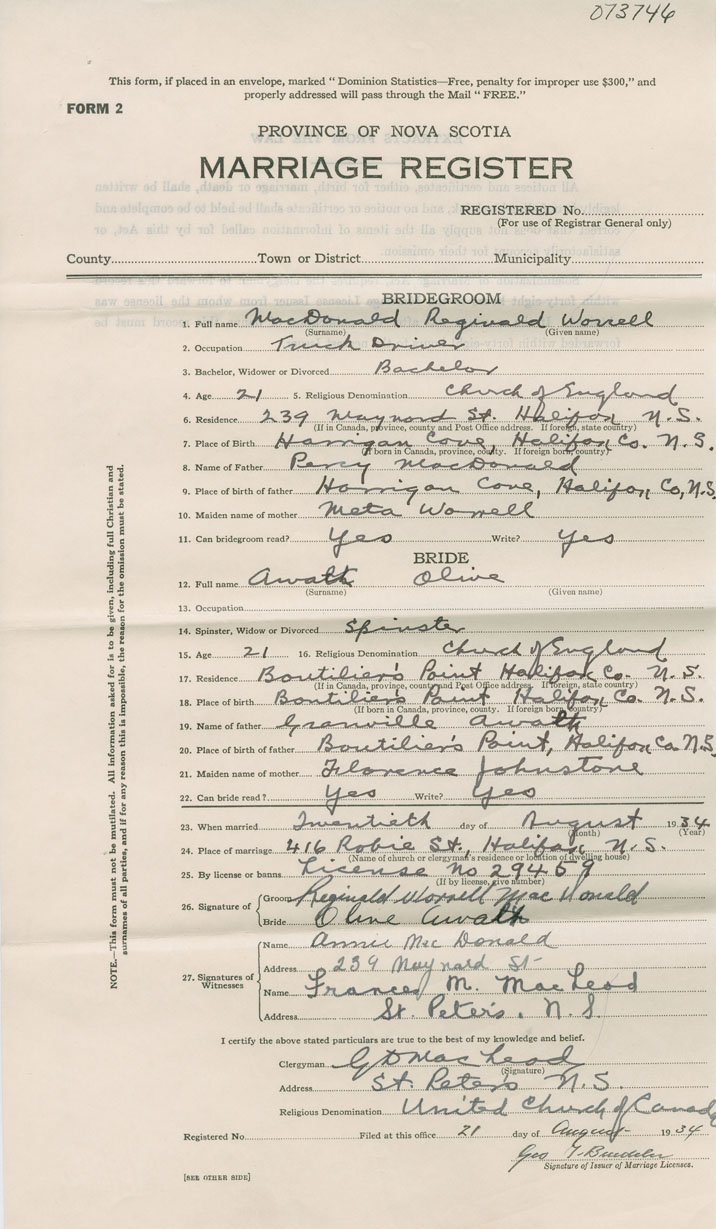 073746
This form, if placed in an envelope, marked "Dominion Statistics—Free, penalty for improper use $300," and
properly addressed will pass through the Mail "FREE."
FORM 2
PROVINCE OF NOVA SCOTIA
MARRIAGE REGISTER
REGISTERED No.
(For use of Registrar General only)
County Town or District Municipality
BRIDEGROOM
1. Full name MacDonald Reginald Worrell
(Surname) (Given name)
2. Occupation Truck Driver
3. Bachelor, Widower or Divorced Bachelor
4. Age 21 5. Religious Denomination Church of England
6. Residence 239 Maynard St. Halifax N.S.
(If in Canada, province, county and Post Office address. If foreign, state country)
7. Place of Birth Harrigan Cove, Halifax Co. N.S.
(If born in Canada, province, county. If foreign born, country)
8. Name of Father Percy MacDonald
9. Place of birth of father Harrigan Cove, Halifax Co, N.S.
10. Maiden name of mother Meta Worrell
11. Can bridegroom read? Yes Write? Yes
BRIDE
12. Full name Awalt Olive
(Surname) (Given name)
13. Occupation
14. Spinster, Widow or Divorced Spinster
15. Age 21 16. Religious Denomination Church of England
17. Residence Boutilier's Point Halifax Co. N.S.
(If in Canada, province, county and Post Office address. If foreign, state country)
18. Place of birth Boutilier's Point Halifax Co. N.S.
(If born in Canada, province, county. If foreign born, country)
19. Name of father Granville Awalt
20. Place of birth of father Boutilier's Point, Halifax Co. N.S.
21. Maiden name of mother Florence Johnstone
22. Can bride read? Yes Write? Yes
23. When married Twentieth day of August 1934
(Month) (Year)
24. Place of marriage 416 Robie St., Halifax, N.S.
(Name of church or clergyman's residence or location of dwelling house)
25. By license or banns License no 29459
(If by license, give number)
26. Signature of Groom Reginald Worrell MacDonald
Bride Olive Awalt
27. Signatures of Witnesses
Name Annie MacDonald
Address 239 Maynard St
Name Frances M. MacLeod
Address St. Peter's, N.S.
I certify the above stated particulars are true to the best of my knowledge and belief.
Clergyman G D MacLeod
(Signature)
Address St. Peter's N.S.
Religious Denomination United Church of Canada
Registered No. Filed at this office 21 day of August 1934
Geo
Signature of Issuer of Marriage Licenses.
[SEE OTHER SIDE]
NOTE.—This form must not be mutilated. All information asked for is to be given, including full Christian and
surnames of all parties, and if for any reason this is impossible, the reason for the omission must be stated.